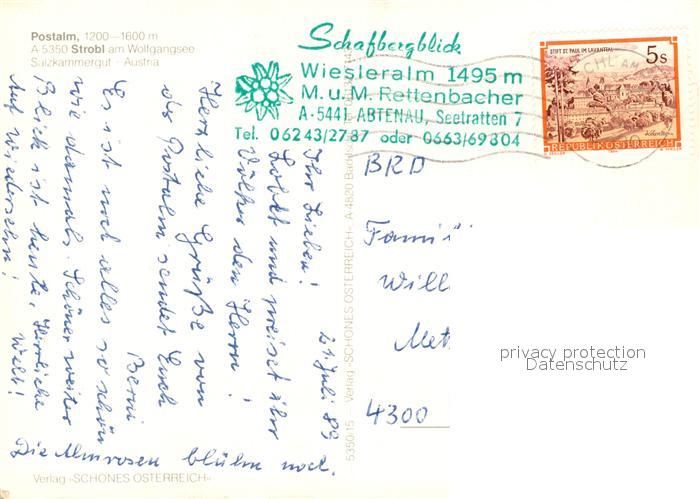 Postalm, 1200—1600 m
A 5350 Strobl am Wolfgangsee
Salzkammergut - Austria
Schafbergblick
Wiesleralm 1495 m
M. u. M. Rettenbacher
A-5441 ABTENAU, Seetratten 7
Tel. 06243/2787 oder 0663/69304
STIFT ST. PAUL IM LAVANTTAL
5s
REPUBLIK ÖSTERREICH
21. Juli 89
Ihr Lieben!
Lobet und preiset ihr
Völker den Herrn!
Herrliche Grüße von
der Postalm sendet Euch
Berni
Es ist noch alles so schön
wie damals. Schöner weiter
Blick ist heute. Herrliche
Welt!
Auf Wiedersehn!
Die Almrosen blühn noch.
BRD
Famil
Will
Met
4300
privacy protection
Datenschutz
5350/15 Verlag »SCHÖNES ÖSTERREICH« A 4820 Bad
Verlag »SCHÖNES ÖSTERREICH«